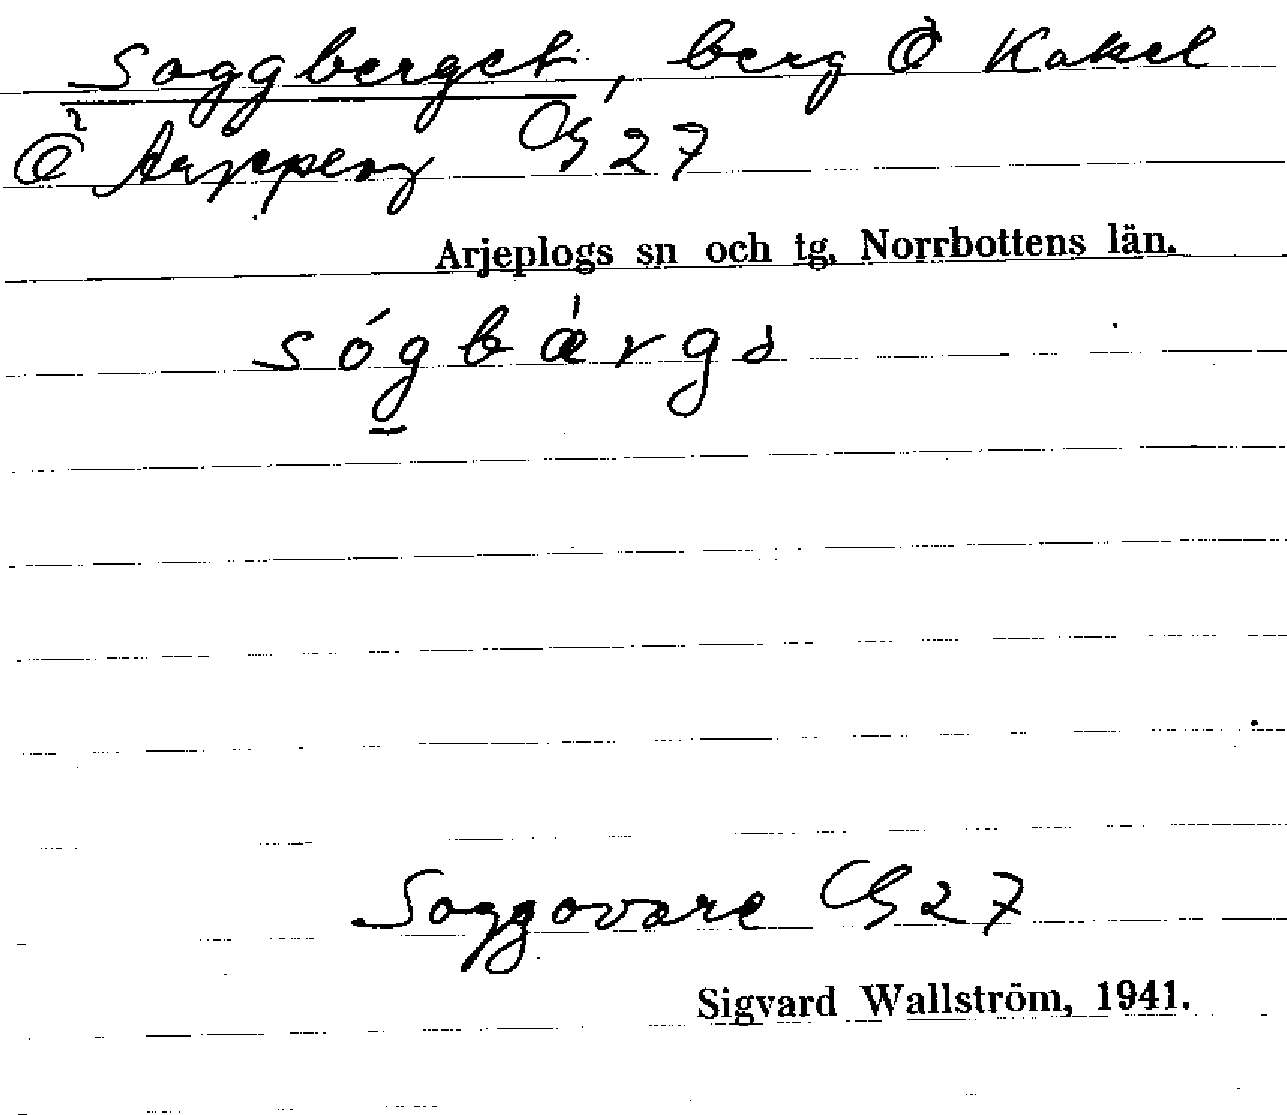 Soggberget, berg Ö Kakel
Ö Arjeplog GS 27
Arjeplogs sn och tg, Norrbottens län.
sógbǽrgə
Soggovare GS 27
Sigvard Wallström, 1941.